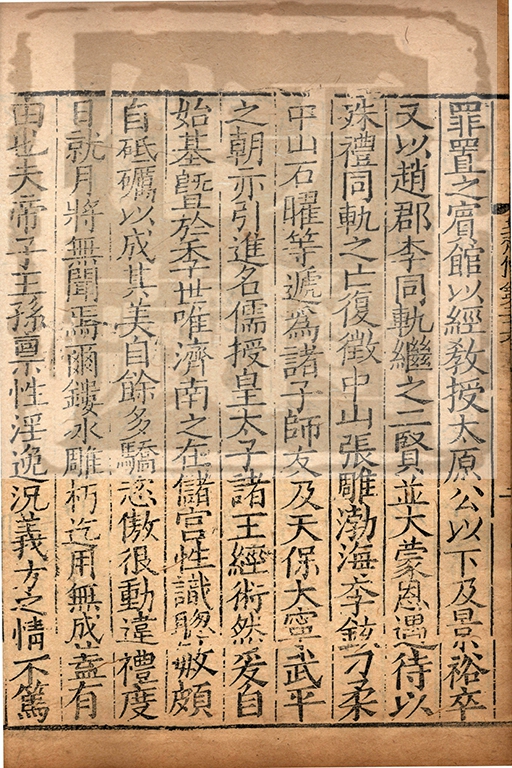 罪置之賓館以經敎授太原公以下及景裕卒
又以趙郡李同軌繼之二賢並大蒙恩遇待以
殊禮同軌之亡復徵中山張雕渤海李鉉刁柔
中山石曜等遞爲諸子師友及天保大寧武平
之朝亦引進名儒授皇太子諸王經術然爰自
始基曁於季世唯濟南之在儲宮性識聦敏頗
自砥礪以成其美自餘多驕恣傲很動違禮度
日就月將無聞焉爾鏤氷雕朽迄用無成蓋有
由也夫帝子王孫禀性淫逸況義方之情不篤